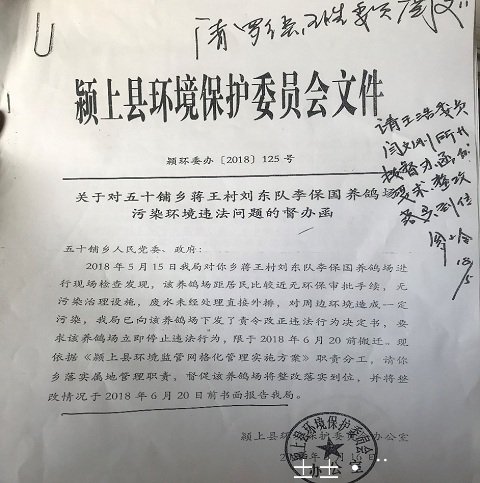 颍上县环境保护委员会文件
颍环委办〔2018〕125号
关于对五十铺乡蒋王村刘东队李保国养鸽场
污染环境违法问题的督办函
五十铺乡人民党委、政府：
2018年5月15日我局对你乡蒋王村刘东队李保国养鸽场进
行现场检查发现，该养鸽场距居民比较近无环保审批手续，无
污染治理设施，废水未经处理直接外排，对周边环境造成一定
污染，我局已向该养鸽场下发了责令改正违法行为决定书，要
求该养鸽场立即停止违法行为，限于2018年6月20前搬迁。现
依据《颍上县环境监管网格化管理实施方案》职责分工，请你
乡落实属地管理职责，督促该养鸽场将整改落实到位，并将整
改情况于2018年6月20日前书面报告我局。
颍上县环境保护委员会办公室
16日
颍上县环境保护委员会
办公室
落实到位
18/5